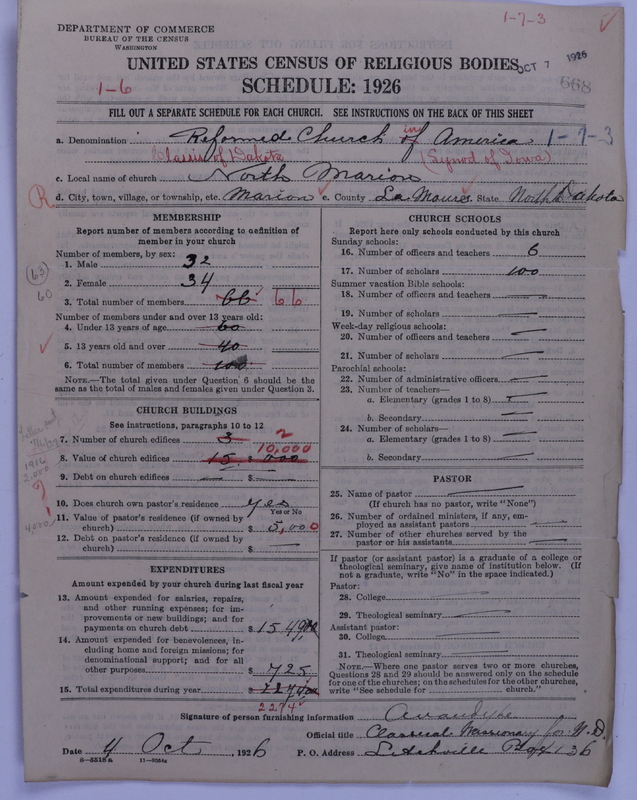 1-7-3
DEPARTMENT OF COMMERCE
BUREAU OF THE CENSUS
WASHINGTON
UNITED STATES CENSUS OF RELIGIOUS BODIES
OCT 7 1926
668
1-6
SCHEDULE: 1926
FILL OUT A SEPARATE SCHEDULE FOR EACH CHURCH. SEE INSTRUCTIONS ON THE BACK OF THIS SHEET
a. Denomination Reformed Church in of America 1-7-3
Classis of Dakota (Synod of Iowa)
c. Local name of church North Marion
R d. City, town, village, or township, etc. Marion e. County La Moure State North Dakota
MEMBERSHIP
Report number of members according to definition of
member in your church
Number of members, by sex:
1. Male 32
(63)
60
2. Female 34
3. Total number of members 66 66
Number of members under and over 13 years old:
4. Under 13 years of age 60
5. 13 years old and over 40
6. Total number of members 100
NOTE.—The total given under Question 6 should be the
same as the total of males and females given under Question 3.
CHURCH BUILDINGS
See instructions, paragraphs 10 to 12
7. Number of church edifices 3 2
10,000
8. Value of church edifices 15 $ 000
1916
2,000
9. Debt on church edifices $
?
10. Does church own pastor's residence yes
Yes or No
4000
11. Value of pastor's residence (if owned by
church) $ 5,000
12. Debt on pastor's residence (if owned by
church) $
EXPENDITURES
Amount expended by your church during last fiscal year
13. Amount expended for salaries, repairs,
and other running expenses; for im-
provements or new buildings; and for
payments on church debt $ 1549
14. Amount expended for benevolences, in-
cluding home and foreign missions; for
denominational support; and for all
other purposes $ 725
15. Total expenditures during year $ 2274
2274
CHURCH SCHOOLS
Report here only schools conducted by this church
Sunday schools:
16. Number of officers and teachers 6
17. Number of scholars 100
Summer vacation Bible schools:
18. Number of officers and teachers
19. Number of scholars
Week-day religious schools:
20. Number of officers and teachers
21. Number of scholars
Parochial schools:
22. Number of administrative officers
23. Number of teachers—
a. Elementary (grades 1 to 8)
b. Secondary
24. Number of scholars—
a. Elementary (grades 1 to 8)
b. Secondary
PASTOR
25. Name of pastor
(If church has no pastor, write "None")
26. Number of ordained ministers, if any, em-
ployed as assistant pastors
27. Number of other churches served by the
pastor or his assistants
If pastor (or assistant pastor) is a graduate of a college or
theological seminary, give name of institution below. (If
not a graduate, write "No" in the space indicated.)
Pastor:
28. College
29. Theological seminary
Assistant pastor:
30. College
31. Theological seminary
NOTE.—Where one pastor serves two or more churches,
Questions 28 and 29 should be answered only on the schedule
for one of the churches; on the schedules for the other churches,
write "See schedule for church."
Signature of person furnishing information
Official title Classical Missionary for N.D.
Date 4 Oct, 1926 P. O. Address Litchville
8-5518a 11-9064a